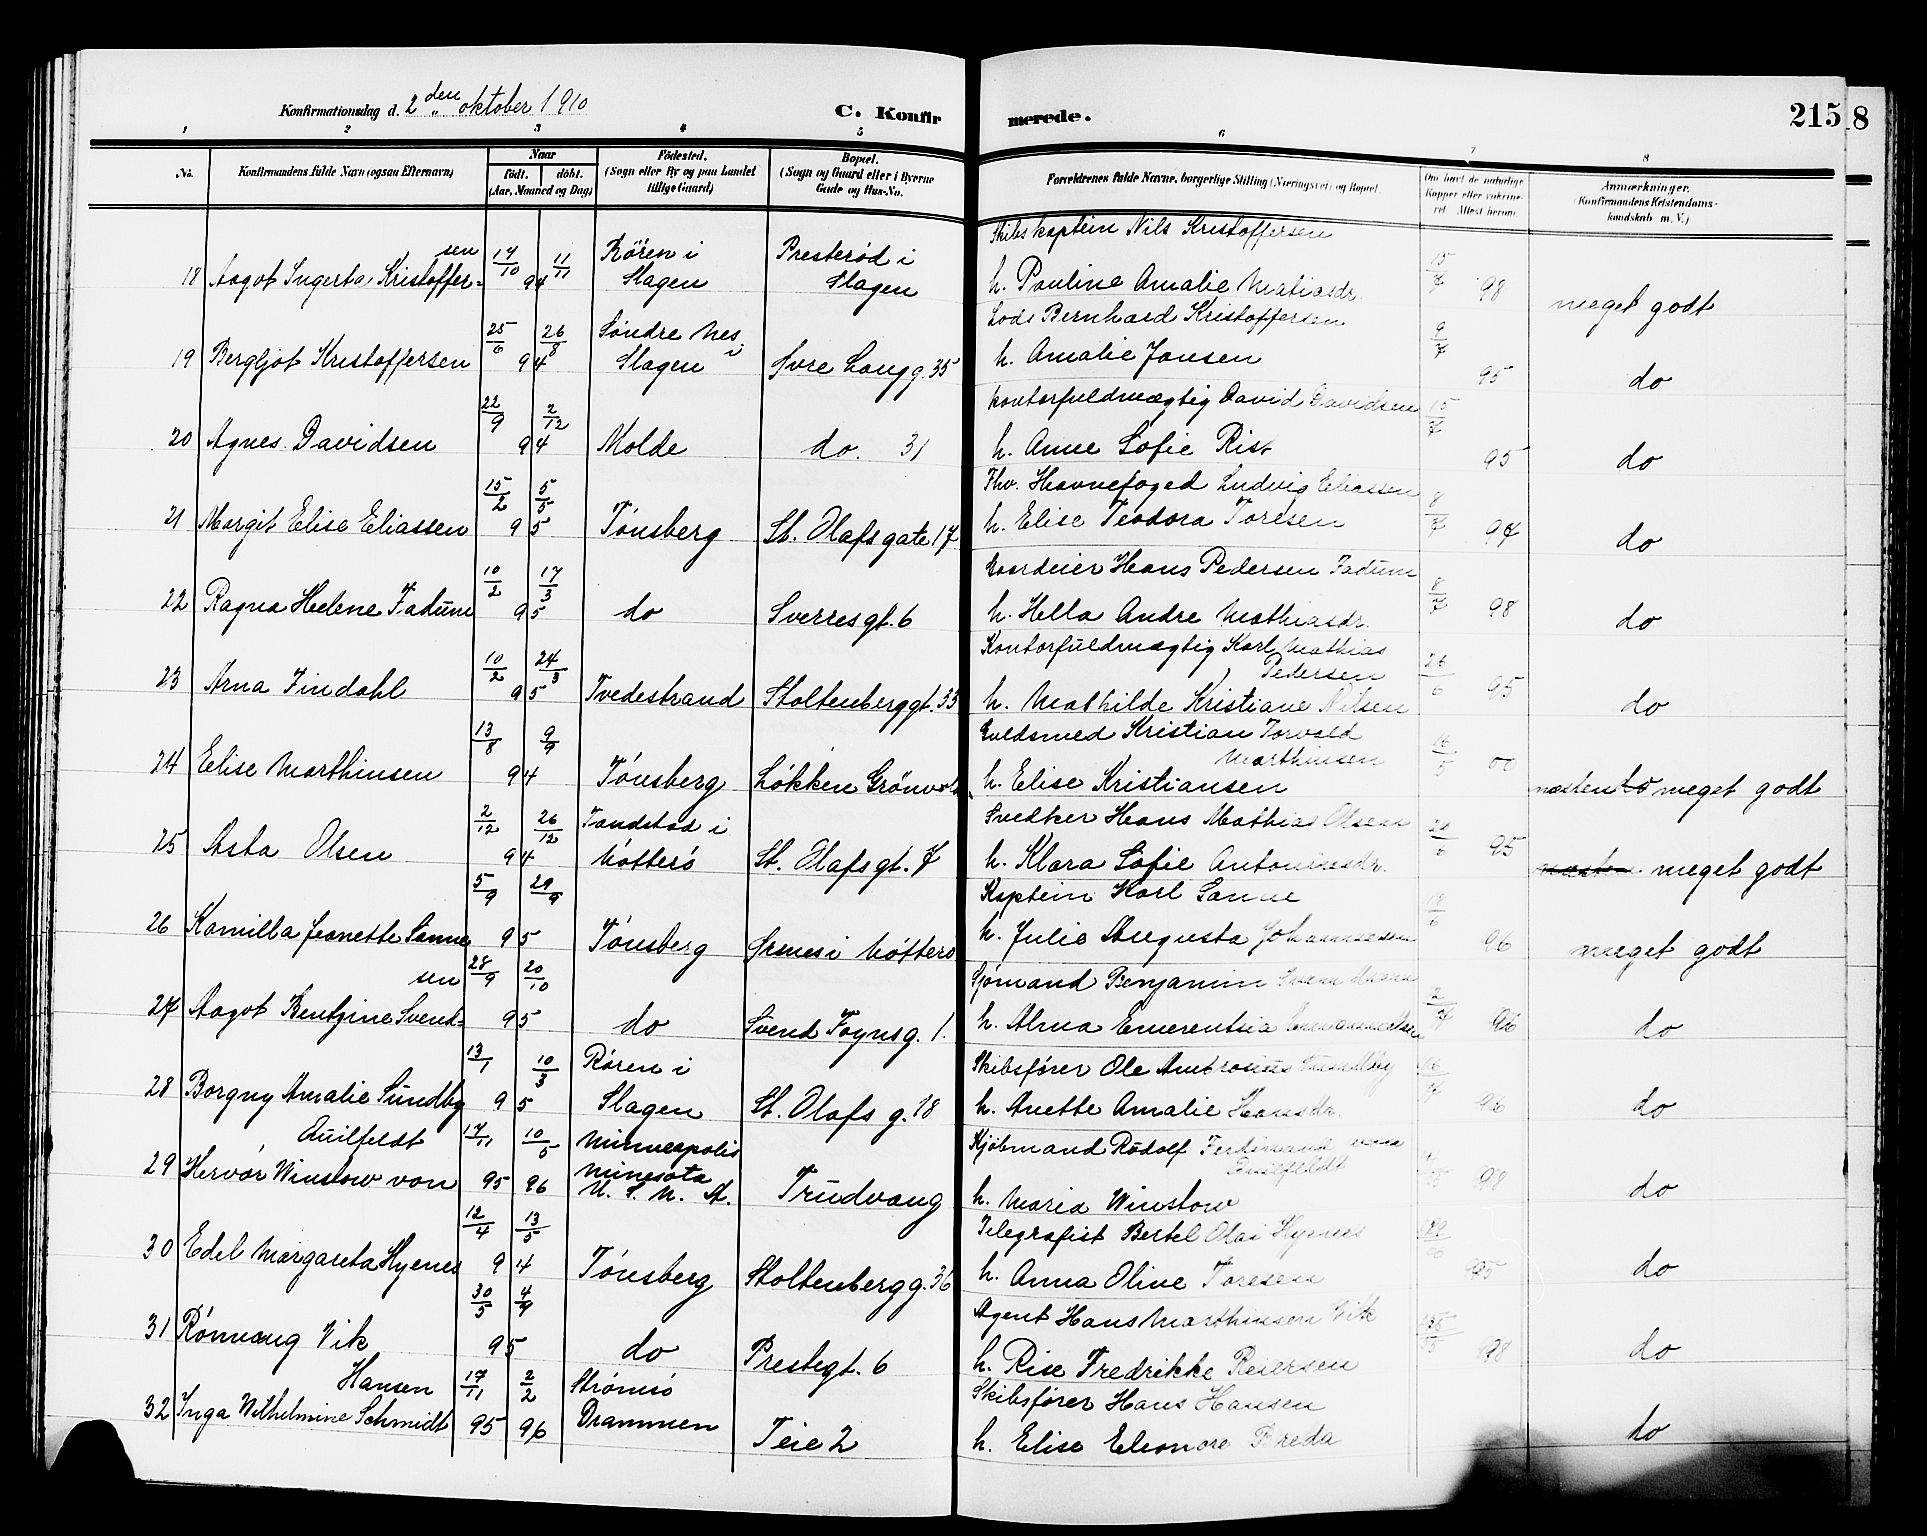 Konfirmationsdag d. 2 den oktober 1910
C. Konfir
merede.
215
8
1 2 3 4 5 6 7 8
No.
Konfirmandens fulde Navn (ogsaa Efternavn)
Naar
født. døbt.
(Aar, Maaned og Dag)
Fødested.
(Sogn eller By og paa Landet
tillige Gaard)
Bopæl.
(Sogn og Gaard eller i Byerne
Gade og Hus-No.
Forældrenes fulde Navne, borgerlige Stilling (Næringsvei) og Bopæl.
Om havt de naturlige
Kopper eller vaccine-
ret. Attest herom.
Anmærkninger.
(Konfirmandens Kristendoms-
kundskab m. V.)
18 Aagot Ingerta Kristoffer-sen 17/10 11/11 94 Rören i Slagen Presterød i Slagen
Skibskaptein Nils Kristoffersen
h. Pauline Amalie Matiasdr. 15/7 98 meget godt
19 Bergljot Kristoffersen 25/6 26/8 94 Søndre Nes i Slagen Øvre Langg. 35
Lods Bernhard Kristoffersen
h. Amalie Jansen 9/7 95 do
20 Agnes Davidsen 22/9 2/12 94 Molde do. 31
Kontorfuldmægtig David Davidsen
h. Anne Sofie Rist 15/7 95 do
21 Margit Elise Eliassen 15/2 5/5 95 Tønsberg St. Olafs gate 17
Fhv. Havnefoged Ludvig Eliassen
h. Elise Teodora Toresen 8/7 97 do
22 Ragna Helene Fadum 10/2 17/3 95 do Sverresgt. 6
Gaardeier Hans Pedersen Fadum
h. Hella Andre Mathiasdr. 8/7 98 do
23 Arna Findahl 10/2 24/3 95 Tvedestrand Stoltenberggt. 33
Kontorfuldmægtig Karl Mathias
Pedersen
h. Mathilde Kristiane Nilsen 26/6 95 do
24 Elise Marthinsen 13/8 9/9 94 Tønsberg Løkken Grönvold
Guldsmed Kristian Torvald
Marthinsen
h. Elise Kristiansen 16/5 00 næsten do meget godt
25 Asta Olsen 2/12 26/12 94 Tandstad i Nøtterø St. Olafsgt. 7
Snedker Hans Mathias Olsen
h. Klara Sofie Antoniusdr. 20/6 95 næsten meget godt
26 Kamilla Jeanette Sanne 5/9 29/9 95 Tønsberg Ørsnes i Nøtterø
Kaptein Karl Sanne
h. Julie Augusta Johannessen 18/6 96 meget godt
27 Aagot Bentzine Svend-sen 28/9 20/10 95 do Svend Foynsg. 1.
Sjømand Benjamin Svendsen
h. Alma Emerentsia Emanuelsen 2/7 96 do
28 Borgny Amalie Sundby 13/1 10/3 95 Røren i Slagen St. Olafs g. 18
Skibsfører Ole Ambrosius Sundby
h. Anette Amalie Hansdr. 16/7 96 do
29 Hervor Winslow von Qvilfeldt 17/11 10/5 95 96 Minneapolis Minesota U. S. N. A. Trudvang
Kjøbmand Rudolf Ferdinand von
Qvilfeldt
h. Maria Winslow 98 do
30 Edel Margareta Hyenes 12/4 13/5 94 Tønsberg Stoltenbergg. 36
Telegrafist Bertel Olai Hynes
h. Anna Oline Toresen 95 do
31 Rønnaug Vik 30/5 4/9 95 do Prestegt. 6
Agent Hans Marthinsen Vik
h. Rise Fredrikke Reiersen 98 do
32 Inga Wilhelmine Schmidt Hansen 17/11 2/2 95 96 Strømsø Drammen Teie 2
Skibsfører Hans Hansen
h. Elise Eleonore Breda do